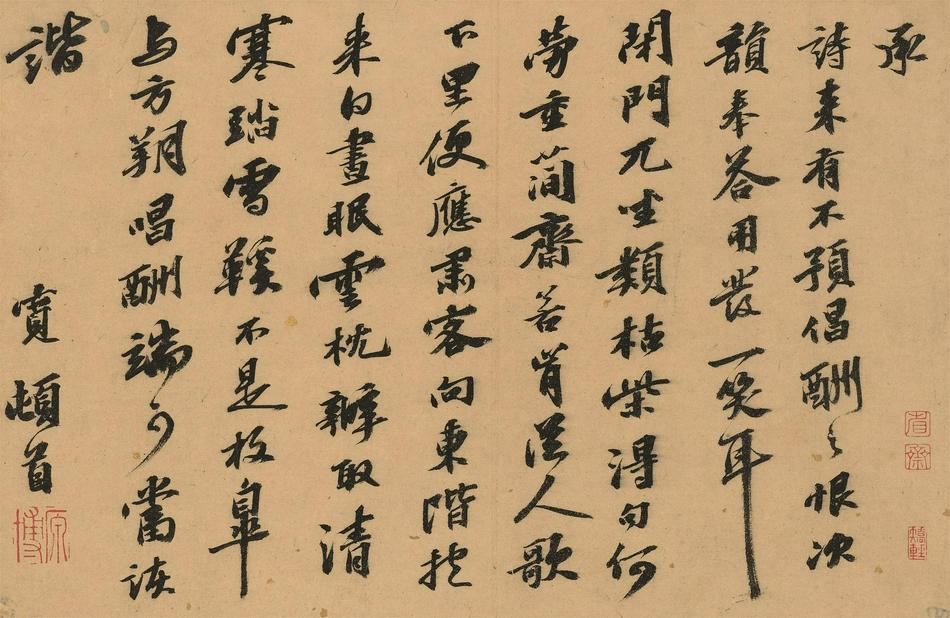 承
詩來有不預倡酬之恨次
韻奉答用發一笑耳
閉門兀坐類枯柴得句何
勞重簡齋若肯從人歌
下里便應肅客向東階抱
來白晝眠雲枕辦取清
寒踏雪鞵不是枚皋
与方朔唱酬端可當詼
諧
寬頓首
原博